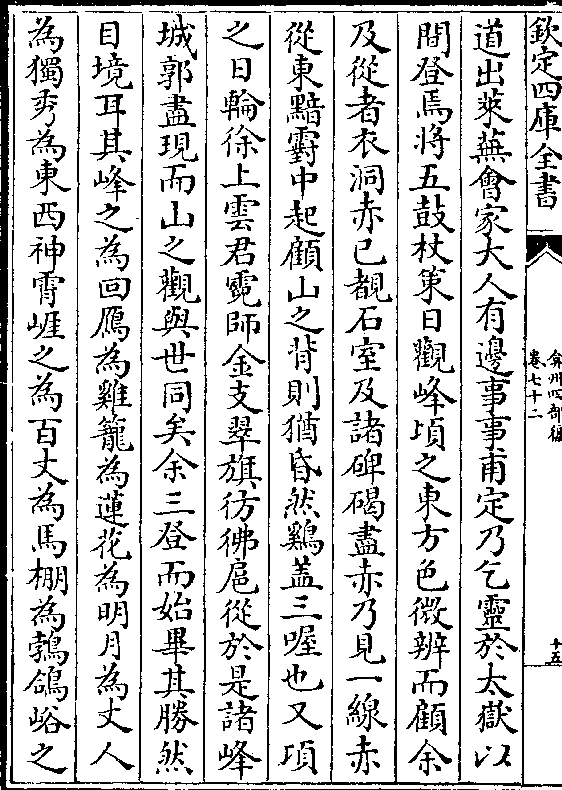 欽定四庫全書
弇州四部稿
卷七十二
十五
道出萊蕪會家大人有邊事事甫定乃乞靈於太嶽以
間登焉將五鼓杖策日觀峰頃之東方色微辨而顧余
及從者衣洞赤已覩石室及諸碑碣盡赤乃見一線赤
從東黯霨中起顧山之背則猶昏然鷄盖三喔也又頃
之日輪徐上雲君霓師金支翠旗彷彿扈從於是諸峰
城郭盡現而山之觀與世同矣余三登而始畢其勝然
目境耳其峰之為回鴈為雞籠為蓮花為明月為丈人
為獨秀為東西神霄崕之為百丈為馬棚為鵓鴿峪之